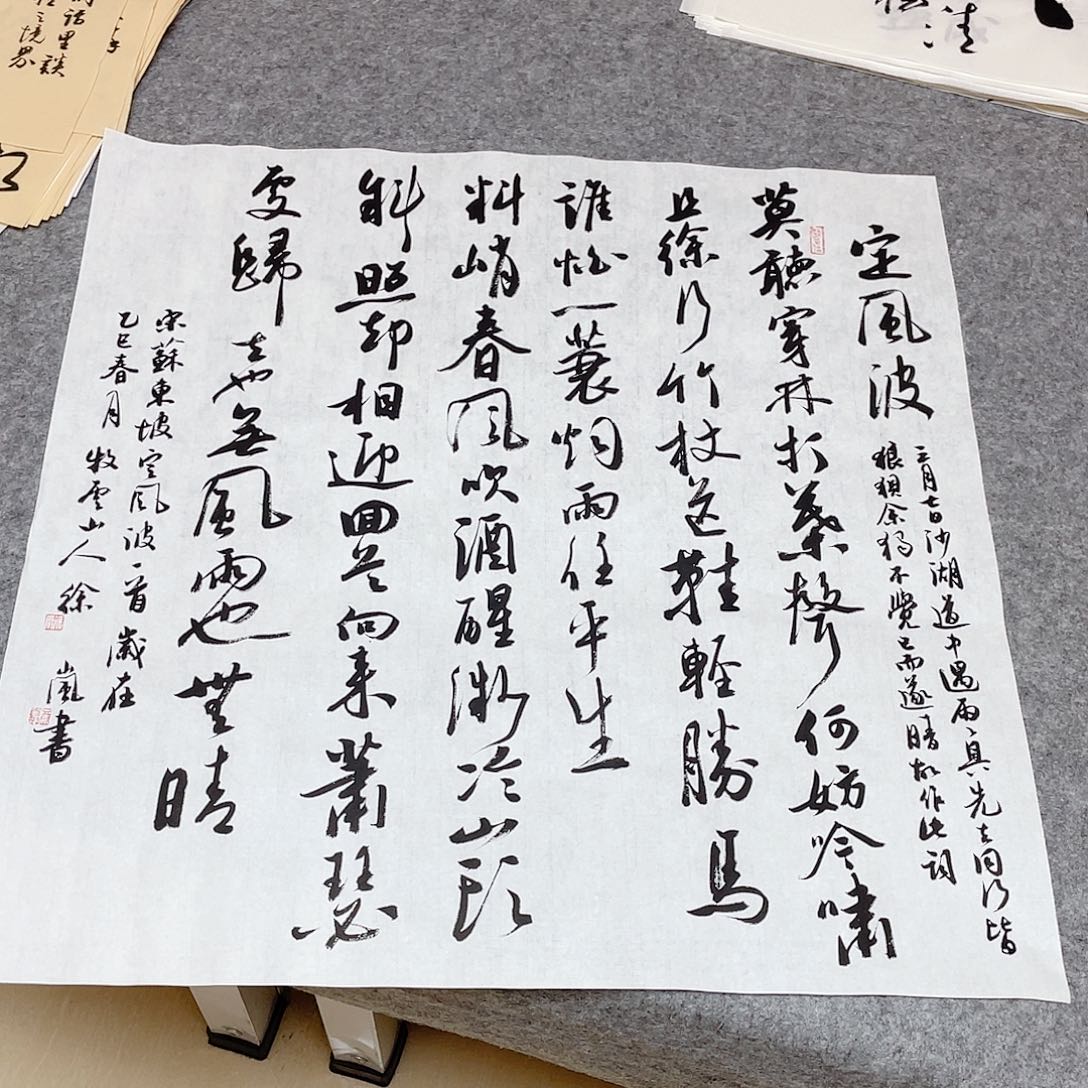 定風波
三月七日沙湖道中遇雨々具先去同行皆
狼狽余獨不覺已而遂晴故作此詞
莫聽穿林打葉聲何妨吟嘯
且徐行竹杖芒鞋輕勝馬
誰怕一蓑烟雨任平生
料峭春風吹酒醒微冷山頭
斜照却相迎回首向来蕭瑟
處歸去也無風雨也無晴
宋蘇東坡定風波一首歲在
乙巳春月牧雲山人徐嵐書
清
話里談
之境界